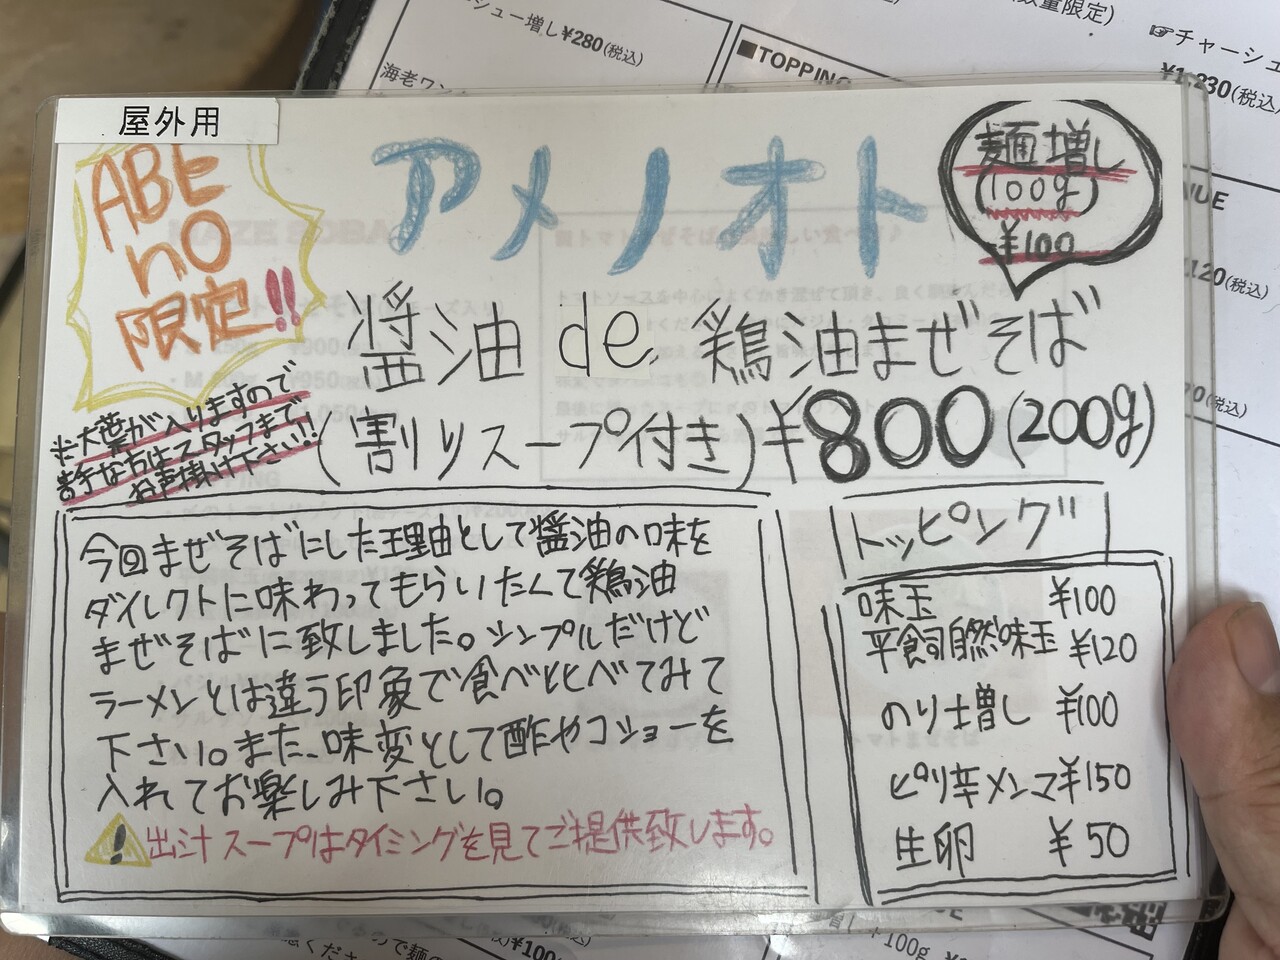 シュー増し¥280(税込)
海老ワン
■TOPPING
数量限定)
☞チャーシュー
(税込)
屋外用
ABE
no
限定!!
アメノオト
麺増し
(100g)
¥100
醤油 de 鶏油まぜそば
(割りスープ付き)¥800(200g)
※大葉が入りますので
苦手な方はスタッフまで
お声掛け下さい!!
今回まぜそばにした理由として醤油の味を
ダイレクトに味わってもらいたくて鶏油
まぜそばに致しました。シンプルだけど
ラーメンとは違う印象で食べ比べてみて
下さい。また、味変として酢やコショーを
入れてお楽しみ下さい。
出汁スープはタイミングを見てご提供致します。
トッピング
味玉 ¥100
平飼自然味玉 ¥120
のり増し ¥100
ピリ辛メンマ¥150
生卵 ¥50
(税込)
(税込)
¥100
+100g